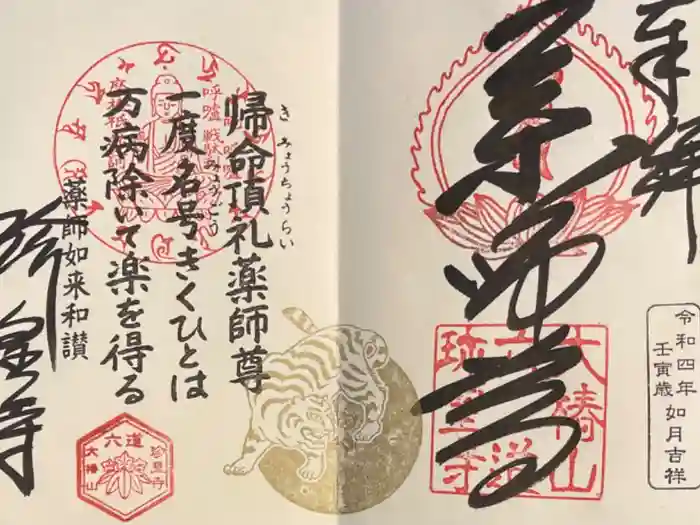 奉拝
薬師尊
令和四年 如月吉祥
壬寅歳
大椿山
六道
珍皇寺
帰命頂礼薬師尊
き みょうちょうらい
一度名号きくひとは
みょうごう
万病除いて楽を得る
薬師如来和讃
珍皇寺
六道
大椿山
珍皇寺